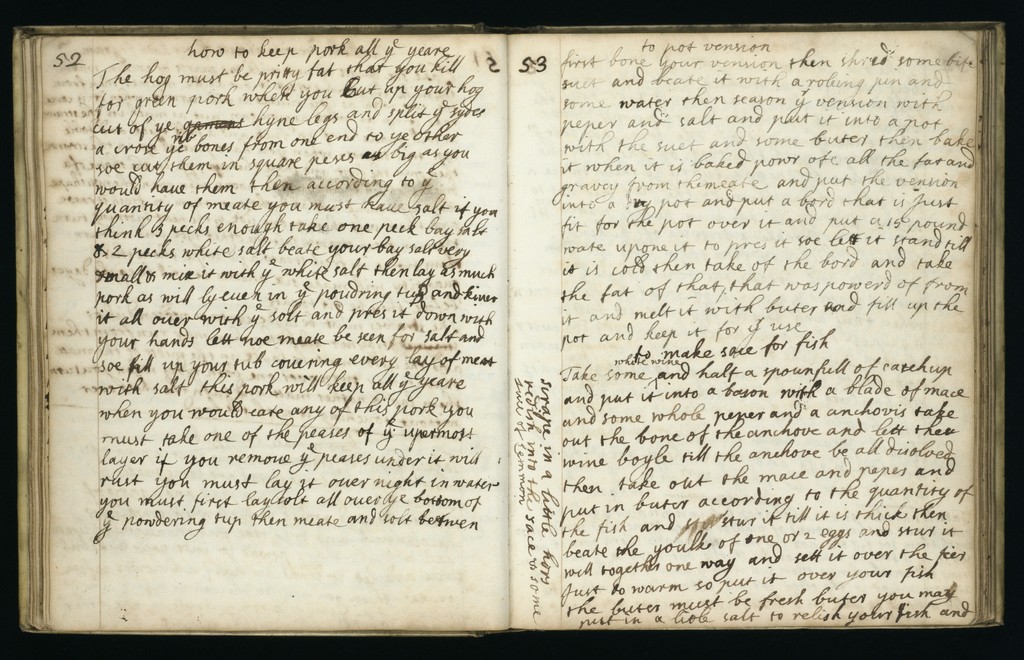 52
how to keep pork all ye yeare
The hog must be pritty fat that you kill
for green pork when you cut up your hog
cut of ye hyne legs and split ye sydes
a cross ye rib bones from one end to ye other
soe cut them in square peses as big as you
would have them then according to ye
quantity of meate you must have salt if you
think 3 pecks enough take one peck bay salt
& 2 pecks white salt beate your bay salt very
small & mix it with ye white salt then lay as much
pork as will ly even in ye poudring tup and kiver
it all over with ye solt and pres it down with
your hands lett noe meate be seen for salt and
soe fill up your tub covering every lay of meat
with salt this pork will keep all ye yeare
when you would eate any of this pork you
must take one of the peases of ye upermost
layer if you remove ye peases under it will
rust you must lay it over night in water
you must first lay solt all over ye bottom of
ye pondering tup then meate and solt betwen
53
to pot venison
first bone your venison then shred some bife
suet and beate it with a roling pin and
some water then season ye venison with
peper and salt and put it into a pot
with the suet and some buter then bake
it when it is baked powr ofe all the fat and
gravey from the meate and put the venison
into a dry pot and put a bord that is just
fit for the pot over it and put a 15 pound
wate upone it to pres it soe lett it stand till
it is cold then take of the bord and take
the fat of that, that was powerd of from
it and melt it with buter and fill up the
pot and keep it for ye use
to make sace for fish
Take some white wine and half a spounfull of catchup
and put it into a bason with a blade of mace
and some whole peper and a anchovis take
out the bone of the anchove and lett the
wine boyle till the anchove be all disolved
then take out the mace and peper and
put in buter according to the quantity of
the fish and stur it till it is thick then
beate the youlk of one or 2 eggs and stur it
will together one way and sett it over the fier
Just to warm so put it over your fish
the buter must be fresh buter you may
put in a litle salt to relish your fish and
scrape in a little hors
redish into the sace & some
iuce of lemmon